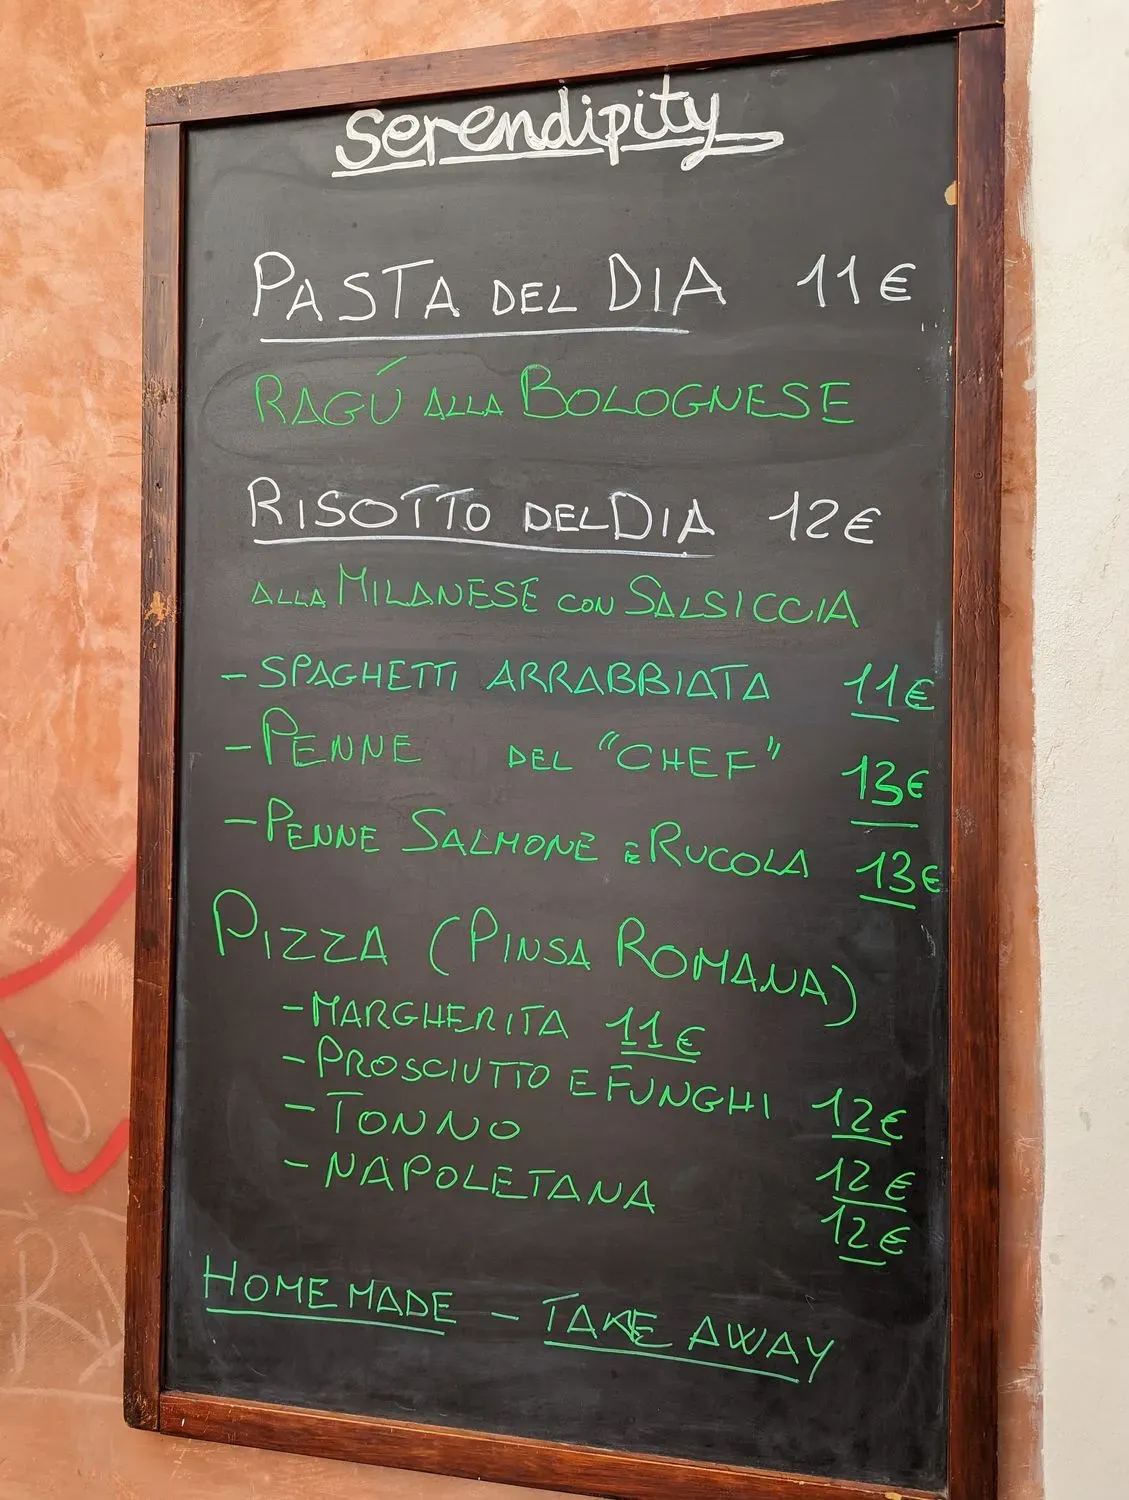 Serendipity
PASTA DEL DIA 11€
RAGÚ ALLA BOLOGNESE
RISOTTO DEL DIA 12€
ALLA MILANESE CON SALSICCIA
- SPAGHETTI ARRABBIATA 11€
- PENNE DEL "CHEF" 13€
- PENNE SALMONE E RUCOLA 13€
PIZZA (PINSA ROMANA)
- MARGHERITA 11€
- PROSCIUTTO E FUNGHI 12€
- TONNO 12€
- NAPOLETANA 12€
HOME MADE - TAKE AWAY